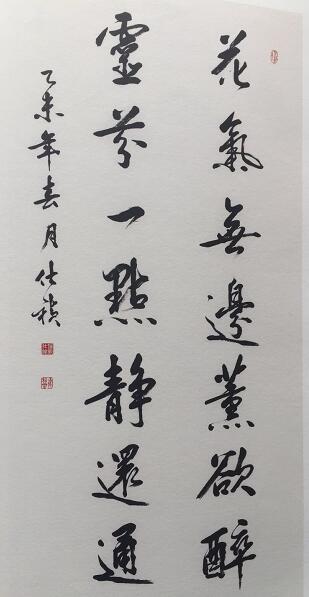 花氣無邊薰欲醉
靈芬一點静還通
乙未年春月仕祯